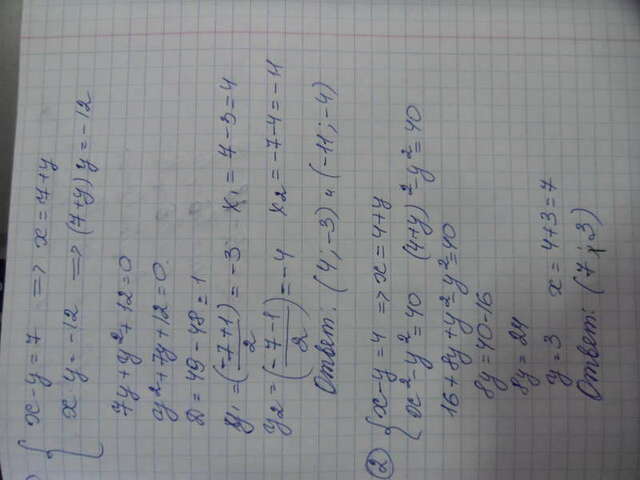 { x-y=7 => x=7+y
x y=-12 => (7+y) y=-12
7y+y²+12=0
y²+7y+12=0
D=49-48=1
y₁=(-7+1)/2=-3 x₁=7-3=4
y₂=(-7-1)/2=-4 x₂=-7-4=-11
Ответ: (4;-3) и (-11;-4)
② { x-y=4 => x=4+y
x²-y²=40 (4+y)²-y²=40
16+8y+y²-y²=40
8y=40-16
8y=24
y=3 x=4+3=7
Ответ: (7;3)